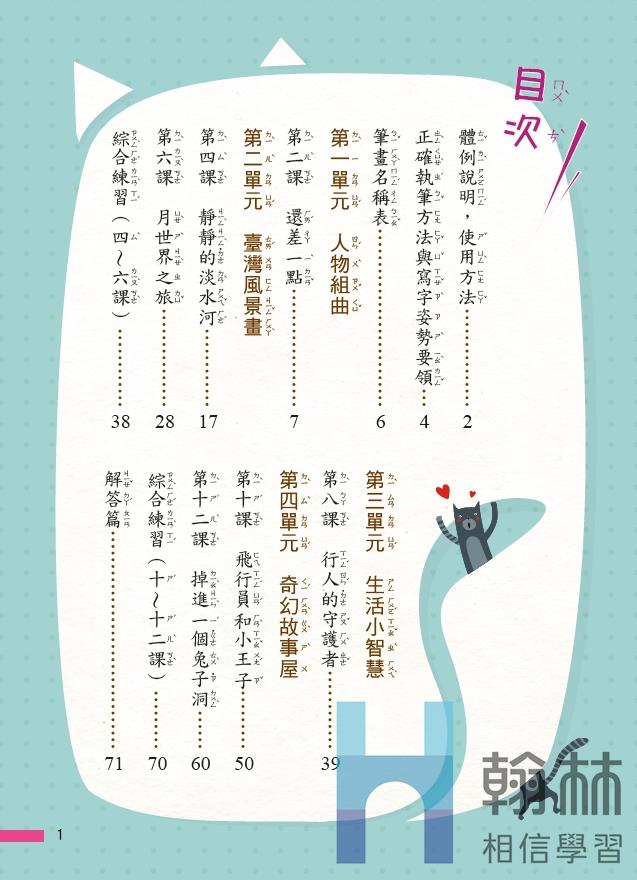 目次
體例說明，使用方法 2
正確執筆方法與寫字姿勢要領 4
筆畫名稱表 6
第一單元 人物組曲
第二課 還差一點 7
第二單元 臺灣風景畫
第四課 靜靜的淡水河 17
第六課 月世界之旅 28
綜合練習（四～六課） 38
第三單元 生活小智慧
第八課 行人的守護者 39
第四單元 奇幻故事屋
第十課 飛行員和小王子 50
第十二課 掉進一個兔子洞 60
綜合練習（十～十二課） 70
解答篇 71
1
翰林
相信學習